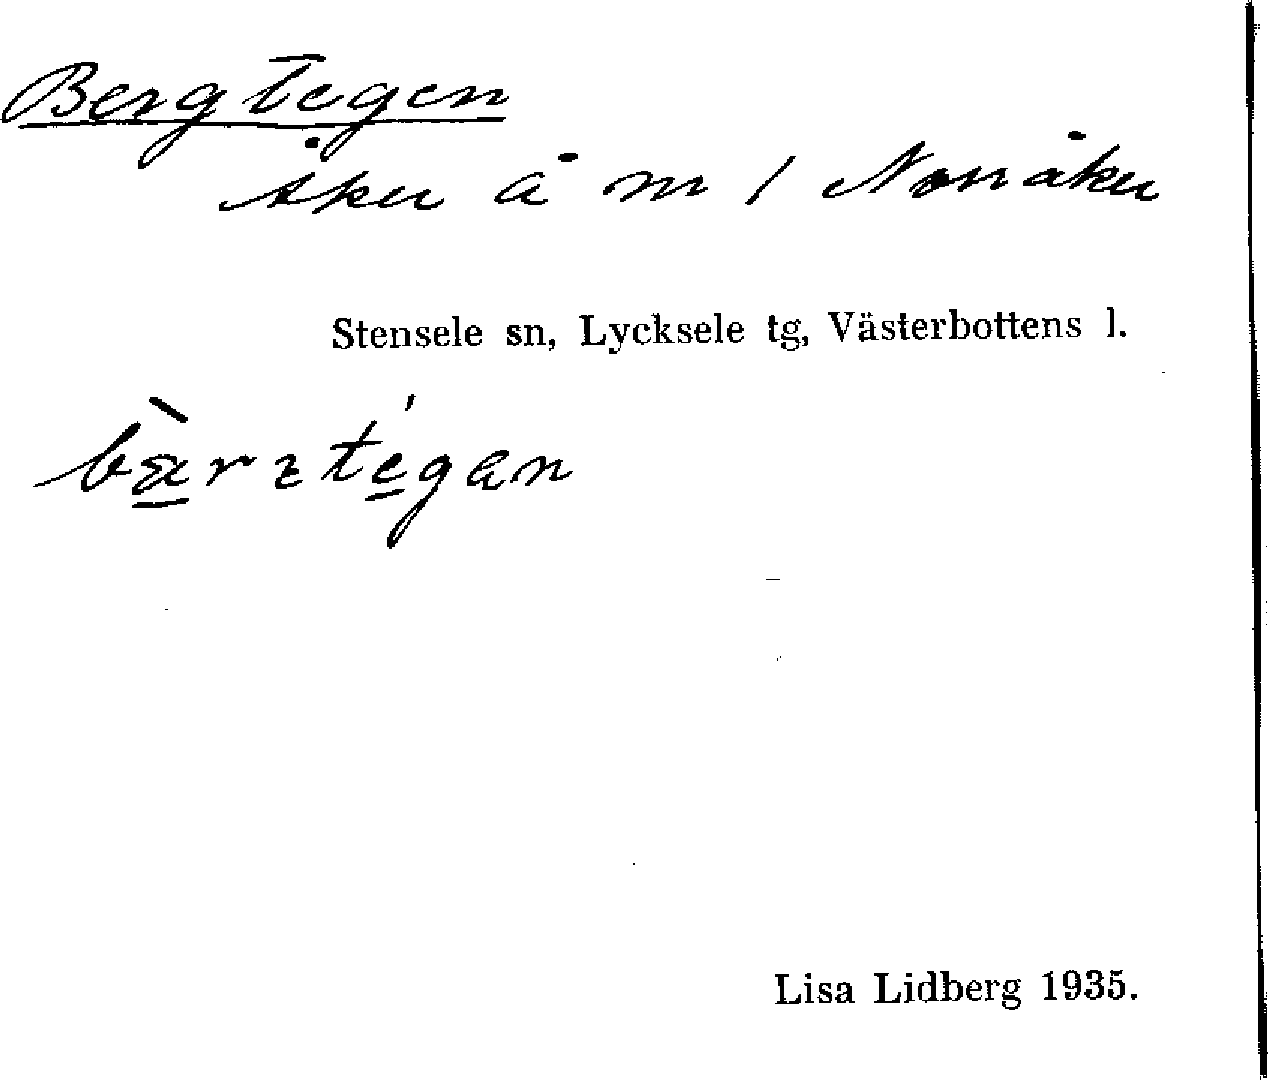 Bergtegen
Åker å nr 1 Norråker
Stensele sn, Lycksele tg, Västerbottens l.
bæ̀rztégan
Lisa Lidberg 1935.